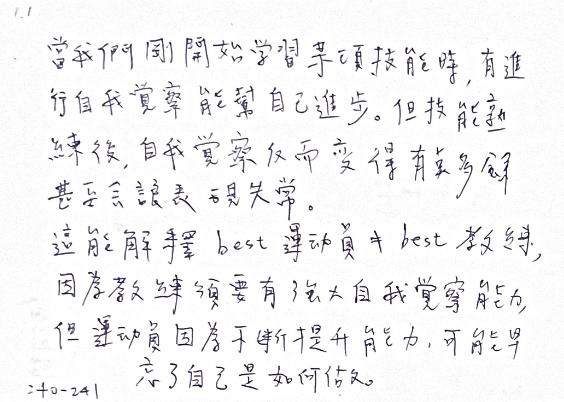 1.1
當我們剛開始学習某項技能時,有進
行自我覚察能幫自己進步。但技能熟
練後,自我覚察反而変得有莫多餘
甚至会讓表現失常。
這能解釋 best 運动員≠best 教練,
因為教練須要有強大自我覚察能力,
但運动員因為不断提升能力,可能早
忘了自己是如何做。
:40-241